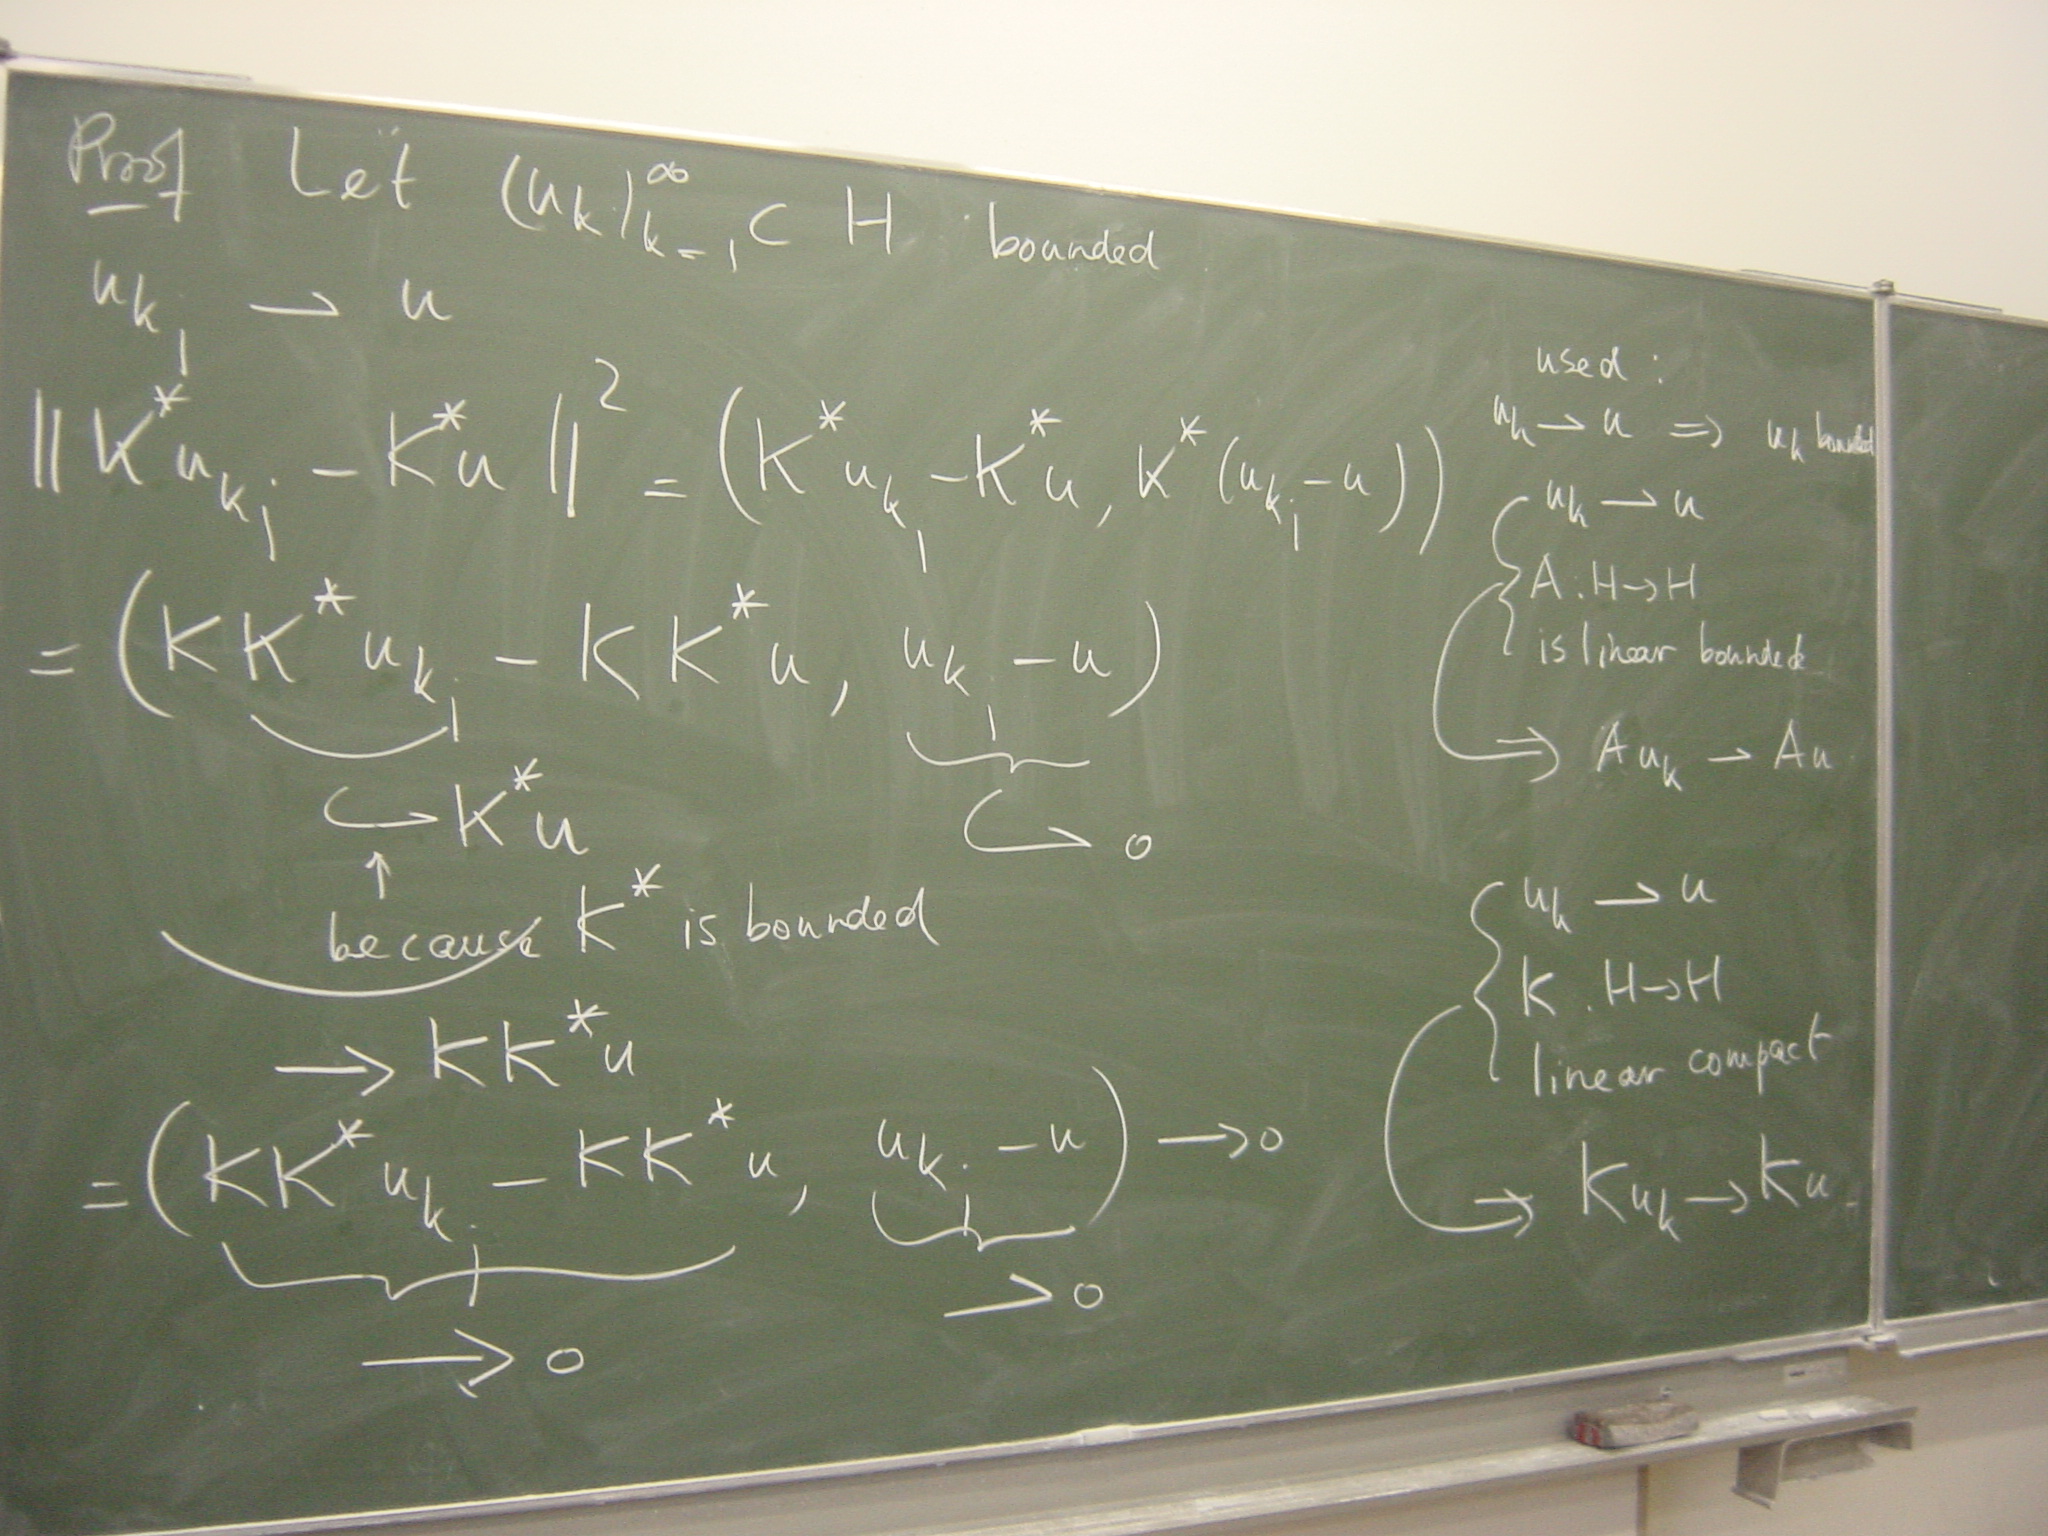 Proof Let (u_k)_{k=1}^∞ ⊂ H bounded
u_{k_j} ⇀ u
‖K*u_{k_j} − K*u‖² = (K*u_{k_j} − K*u, K*(u_{k_j} − u))
= (KK*u_{k_j} − KK*u, u_{k_j} − u)
⇀ K*u
⇀ 0
↑
because K* is bounded
→ KK*u
= (KK*u_{k_j} − KK*u, u_{k_j} − u) → 0
→ 0
⇀ 0
used:
u_k ⇀ u ⇒ u_k bounded
u_k ⇀ u
A: H→H
is linear bounded
⇒ Au_k ⇀ Au
u_k ⇀ u
K: H→H
linear compact
⇒ Ku_k → Ku